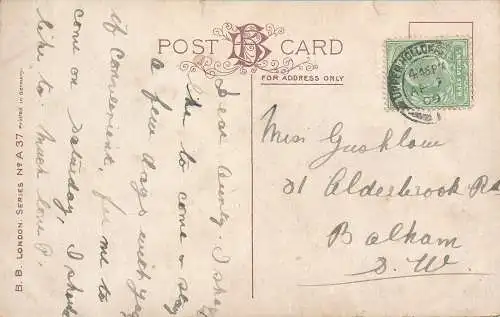 POST CARD
BB
FOR ADDRESS ONLY
Dear Aunty, I shd
like to come & stay
a few days with you
if convenient, for me to
come on Saturday, I should
like to. Much love P.
Miss Gushlow
21 Alderbrook Rd
Balham
S. W.
UPPER HOLLOWAY
4.45 PM
09
B. B. LONDON SERIES No A 37 PRINTED IN GERMANY.